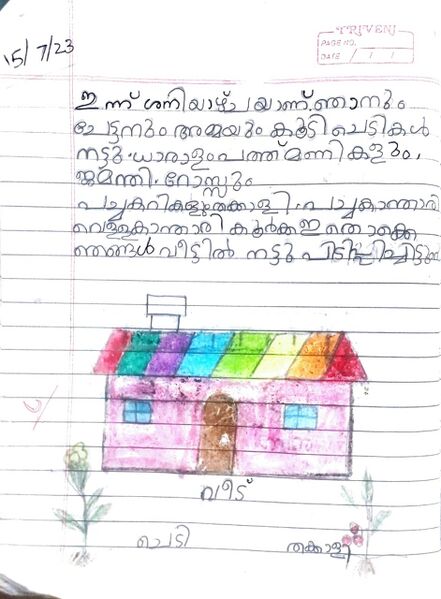 TRIVENI
PAGE NO.
DATE / /
15/7/23
ഇന്ന് ശനിയാഴ്ചയാണ്. ഞാനും
ചേട്ടനും അമ്മയും കൂടി ചെടികൾ
നട്ടു. ധാരാളം പത്ത് മണികളും,
ജമന്തി. റോസ്സും
പച്ചകറികളും തക്കാളി. പച്ചകാന്താരി
വെള്ളകാന്താരി കൂർക്ക ഇതൊക്കെ
ഞങ്ങൾ വീട്ടിൽ നട്ടു
വീട്
ചെടി
തക്കാളി